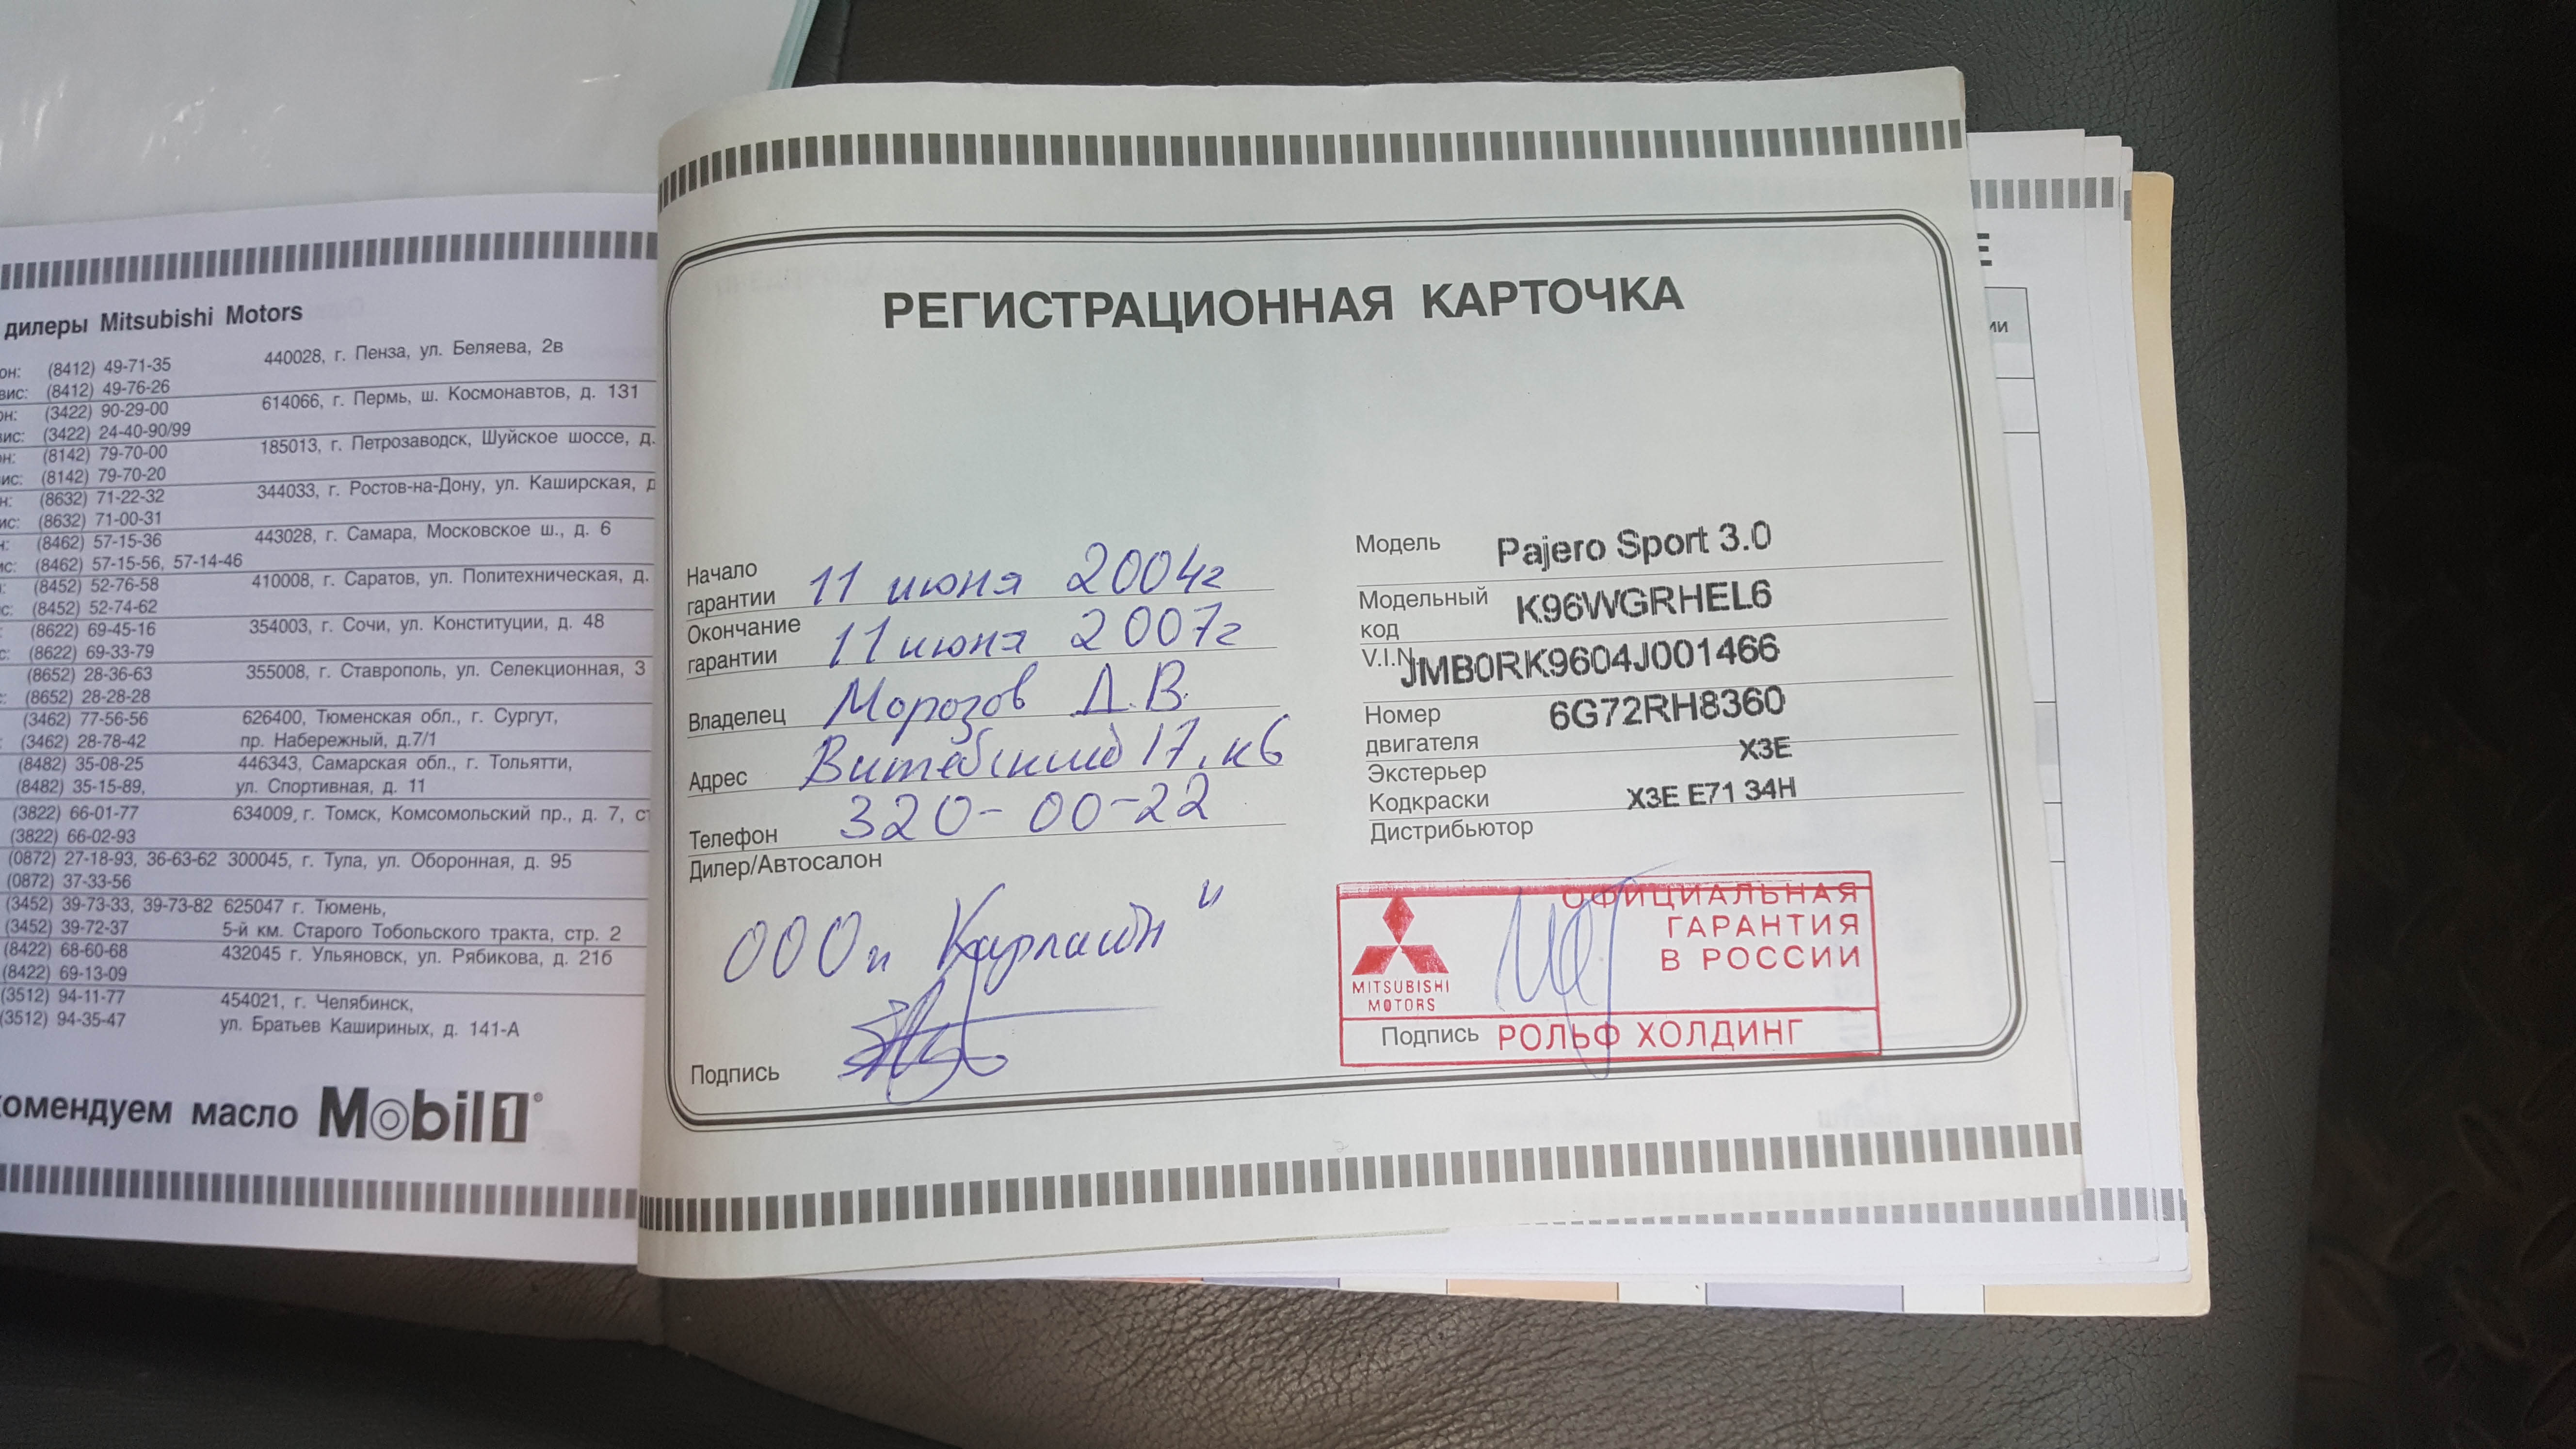 дилеры Mitsubishi Motors
он: (8412) 49-71-35 440028, г. Пенза, ул. Беляева, 2в
вис: (8412) 49-76-26
он: (3422) 90-29-00 614066, г. Пермь, ш. Космонавтов, д. 131
вис: (3422) 24-40-90/99
он: (8142) 79-70-00 185013, г. Петрозаводск, Шуйское шоссе, д.
ис: (8142) 79-70-20
н: (8632) 71-22-32 344033, г. Ростов-на-Дону, ул. Каширская, д
ис: (8632) 71-00-31
н: (8462) 57-15-36 443028, г. Самара, Московское ш., д. 6
ис: (8462) 57-15-56, 57-14-46
: (8452) 52-76-58 410008, г. Саратов, ул. Политехническая, д.
с: (8452) 52-74-62
: (8622) 69-45-16 354003, г. Сочи, ул. Конституции, д. 48
с: (8622) 69-33-79
(8652) 28-36-63 355008, г. Ставрополь, ул. Селекционная, 3
: (8652) 28-28-28
(3462) 77-56-56 626400, Тюменская обл., г. Сургут,
: (3462) 28-78-42 пр. Набережный, д.7/1
(8482) 35-08-25 446343, Самарская обл., г. Тольятти,
(8482) 35-15-89, ул. Спортивная, д. 11
(3822) 66-01-77 634009, г. Томск, Комсомольский пр., д. 7, ст
(3822) 66-02-93
(0872) 27-18-93, 36-63-62 300045, г. Тула, ул. Оборонная, д. 95
(0872) 37-33-56
(3452) 39-73-33, 39-73-82 625047 г. Тюмень,
(3452) 39-72-37 5-й км. Старого Тобольского тракта, стр. 2
(8422) 68-60-68 432045 г. Ульяновск, ул. Рябикова, д. 21б
(8422) 69-13-09
(3512) 94-11-77 454021, г. Челябинск,
(3512) 94-35-47 ул. Братьев Кашириных, д. 141-А
комендуем масло Mobil 1
РЕГИСТРАЦИОННАЯ КАРТОЧКА
Начало гарантии 11 июня 2004г
Окончание гарантии 11 июня 2007г
Владелец Морозов Д.В.
Адрес Витебский 17, к6
Телефон 320-00-22
Дилер/Автосалон
ООО
Подпись
Модель Pajero Sport 3.0
Модельный код K96WGRHEL6
V.I.N. JMB0RK9604J001466
Номер двигателя 6G72RH8360
Экстерьер X3E
Кодкраски X3E E71 34H
Дистрибьютор
ОФИЦИАЛЬНАЯ
ГАРАНТИЯ
В РОССИИ
MITSUBISHI
MOTORS
Подпись РОЛЬФ ХОЛДИНГ
Е
ии